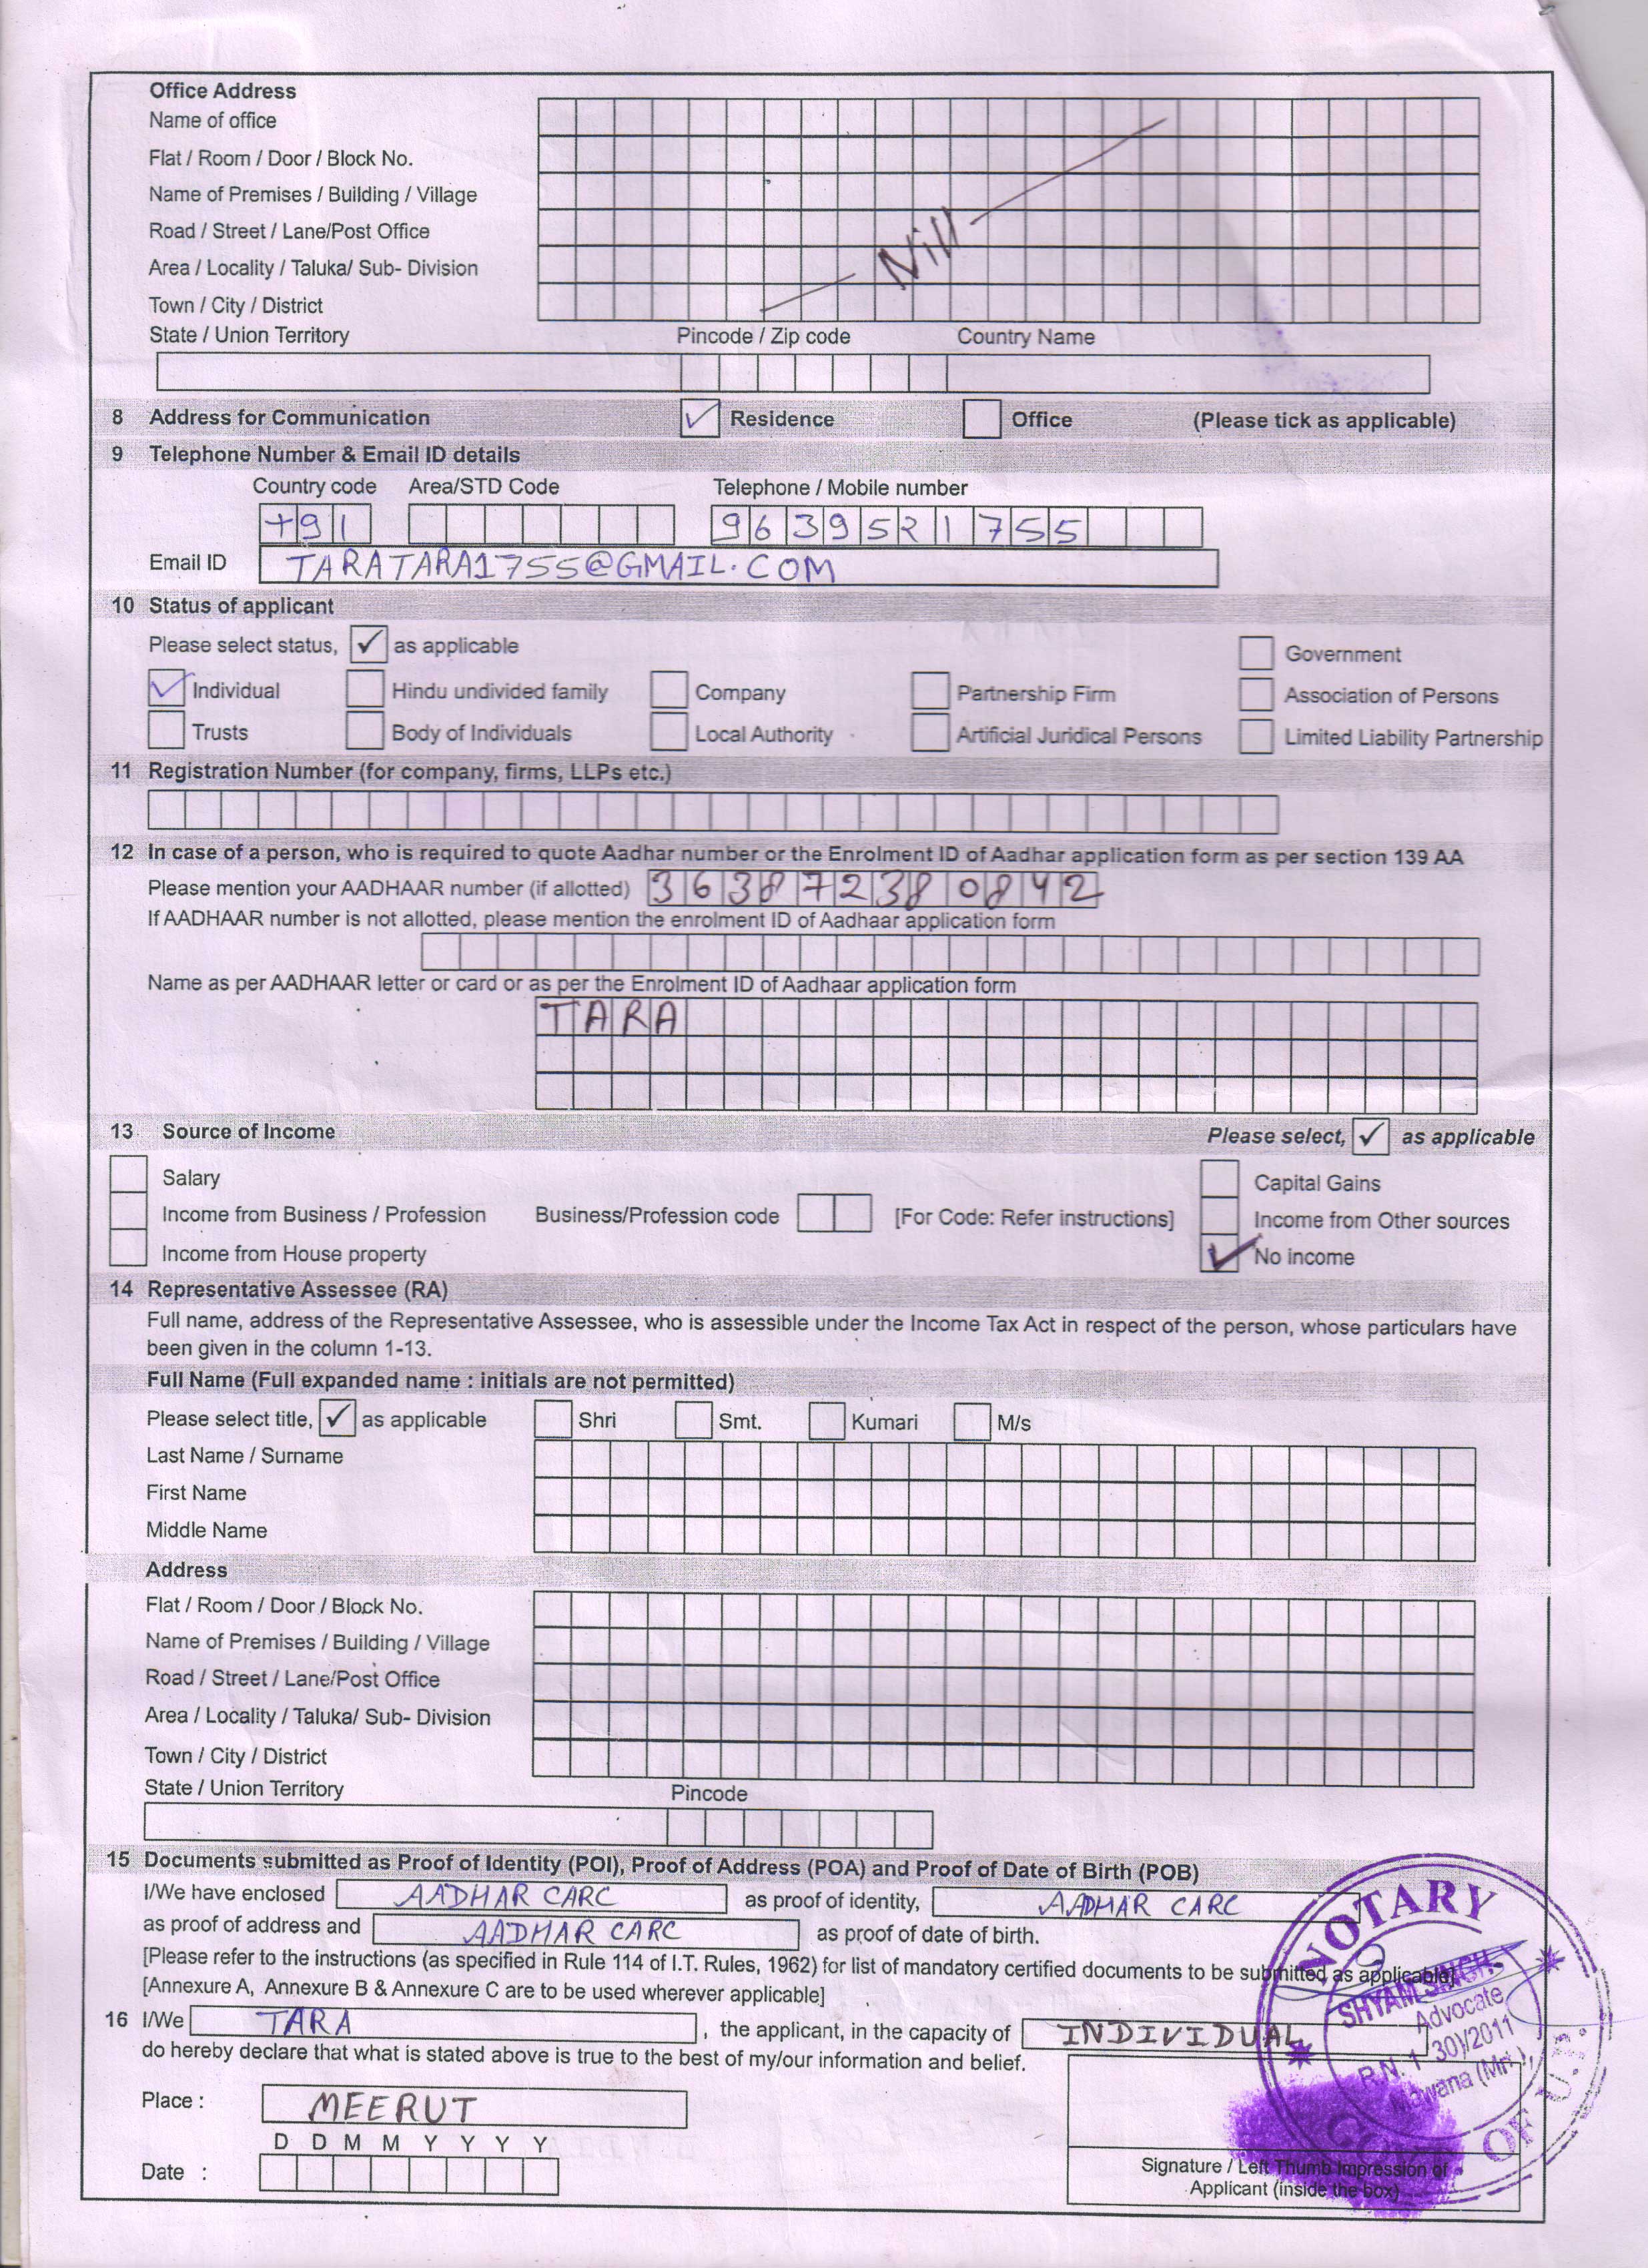 Office Address
Name of office
Flat / Room / Door / Block No.
Name of Premises / Building / Village
Road / Street / Lane/Post Office
Area / Locality / Taluka/ Sub- Division
Town / City / District
Nill
State / Union Territory Pincode / Zip code Country Name
8 Address for Communication Residence Office (Please tick as applicable)
9 Telephone Number & Email ID details
Country code Area/STD Code Telephone / Mobile number
+91 9639521755
Email ID TARATARA1755@GMAIL.COM
10 Status of applicant
Please select status, ✓ as applicable Government
Individual Hindu undivided family Company Partnership Firm Association of Persons
Trusts Body of Individuals Local Authority Artificial Juridical Persons Limited Liability Partnership
11 Registration Number (for company, firms, LLPs etc.)
12 In case of a person, who is required to quote Aadhar number or the Enrolment ID of Aadhar application form as per section 139 AA
Please mention your AADHAAR number (if allotted) 363872380842
If AADHAAR number is not allotted, please mention the enrolment ID of Aadhaar application form
Name as per AADHAAR letter or card or as per the Enrolment ID of Aadhaar application form
TARA
13 Source of Income Please select, ✓ as applicable
Salary Capital Gains
Income from Business / Profession Business/Profession code [For Code: Refer instructions] Income from Other sources
Income from House property No income
14 Representative Assessee (RA)
Full name, address of the Representative Assessee, who is assessible under the Income Tax Act in respect of the person, whose particulars have
been given in the column 1-13.
Full Name (Full expanded name : initials are not permitted)
Please select title, ✓ as applicable Shri Smt. Kumari M/s
Last Name / Surname
First Name
Middle Name
Address
Flat / Room / Door / Block No.
Name of Premises / Building / Village
Road / Street / Lane/Post Office
Area / Locality / Taluka/ Sub- Division
Town / City / District
State / Union Territory Pincode
15 Documents submitted as Proof of Identity (POI), Proof of Address (POA) and Proof of Date of Birth (POB)
I/We have enclosed AADHAR CARC as proof of identity, AADHAR CARC
as proof of address and AADHAR CARC as proof of date of birth.
[Please refer to the instructions (as specified in Rule 114 of I.T. Rules, 1962) for list of mandatory certified documents to be submitted as applicable]
[Annexure A, Annexure B & Annexure C are to be used wherever applicable]
16 I/We TARA , the applicant, in the capacity of INDIVIDUAL
do hereby declare that what is stated above is true to the best of my/our information and belief.
Place : MEERUT
D D M M Y Y Y Y
Date :
Signature / Left Thumb Impression of
Applicant (inside the box)
NOTARY
SHYAM SINGH
Advocate
Mawana (Mrt.)
OF U.P.